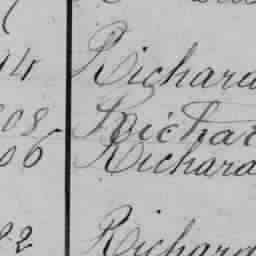 4 Richard
08 Richar
06 Richard
2 Richard